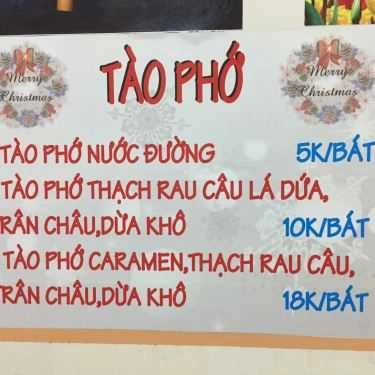 Merry Christmas
TÀO PHỚ
Merry Christmas
TÀO PHỚ NƯỚC ĐƯỜNG 5K/BÁT
TÀO PHỚ THẠCH RAU CÂU LÁ DỨA,
TRÂN CHÂU,DỪA KHÔ 10K/BÁT
TÀO PHỚ CARAMEN,THẠCH RAU CÂU,
TRÂN CHÂU,DỪA KHÔ 18K/BÁT